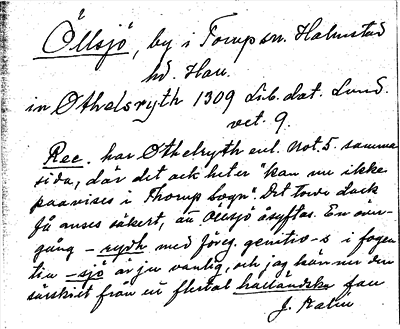 Öllsjö, by i Torup sn. Halmstad
hd. Hall.
in Othelsryth 1309 Lib. dat. Lund.
vet. 9.
Rec. har Othelryth enl. not. 5 samma
sida, där det ock heter "kan nu ikke
paavises i Thorup Sogn". Det torde dock
få anses säkert, att Ollsjö åsyftas. En över-
gång -rydh med föreg. genitiv-s i fogen
till -sjö är ju vanlig, och jag känner den
särskilt från ett flertal halländska fall
J. Kalén